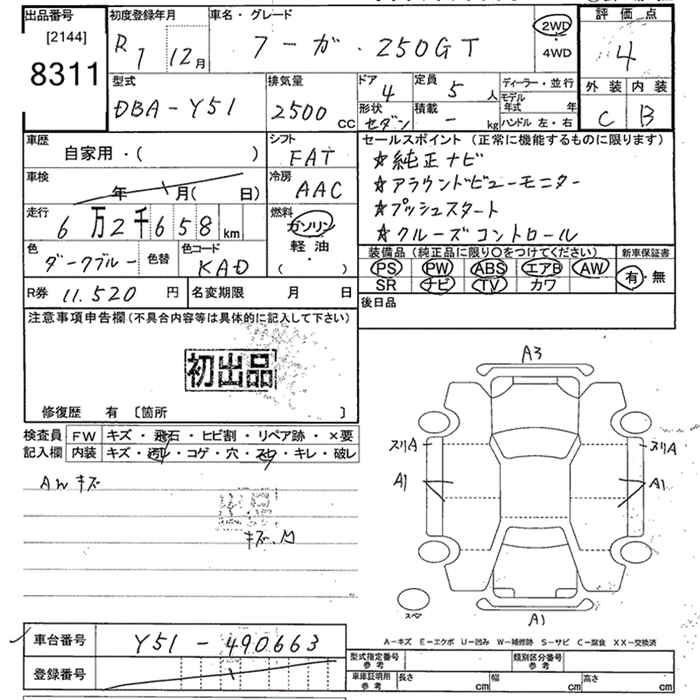 出品番号
[2144]
8311
初度登録年月
R1 12月
車名・グレード
フーガ・250GT
2WD
・
4WD
評価点
4
外装 内装
C B
型式
DBA-Y51
排気量
2500 cc
ドア
4
定員
5 人
形状
セダン
積載
- kg
ディーラー・並行
モデル年式 年
ハンドル 左・右
車歴
自家用・( )
シフト
FAT
車検
年 月( 日)
冷房
AAC
走行
6万2千658km
燃料
ガソリン
軽油
・( )
色
ダークブルー
色替
色コード
KAD
R券 11.520 円
名変期限 月 日
セールスポイント (正常に機能するものに限ります)
☆純正ナビ
☆アラウンドビューモニター
☆プッシュスタート
☆クルーズコントロール
装備品 (純正品に限り○をつけてください)
PS PW ABS エアB AW
SR ナビ TV カワ
新車保証書
有・無
後日品
注意事項申告欄(不具合内容等は具体的に記入して下さい)
初出品
修復歴 有 〔箇所 〕
検査員
記入欄
FW キズ・飛石・ヒビ割・リペア跡・×要
内装 キズ・汚レ・コゲ・穴・スレ・キレ・破レ
AW キズ
キズ.M
A3
スリA スリA
A1 A1
スペア
A1
A-キズ E-エクボ U-凹み W-補修跡 S-サビ C-腐食 XX-交換済
車台番号
Y51-490663
登録番号
型式指定番号
参考
類別区分番号
参考
車庫証明用
参考
長さ cm 幅 cm 高さ cm